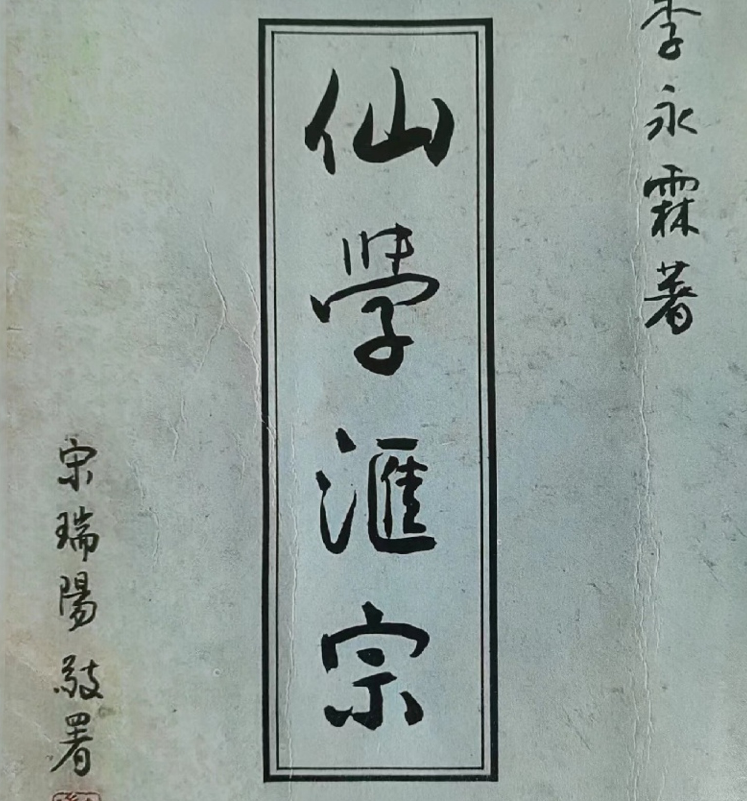 李永霖著
仙學滙宗
宋瑞陽敬署